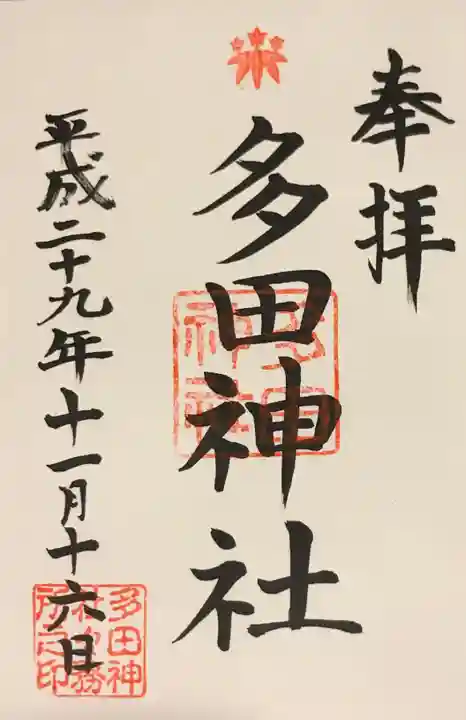 奉拝
多田神社
平成二十九年十一月十六日
多田神
社社務
所之印